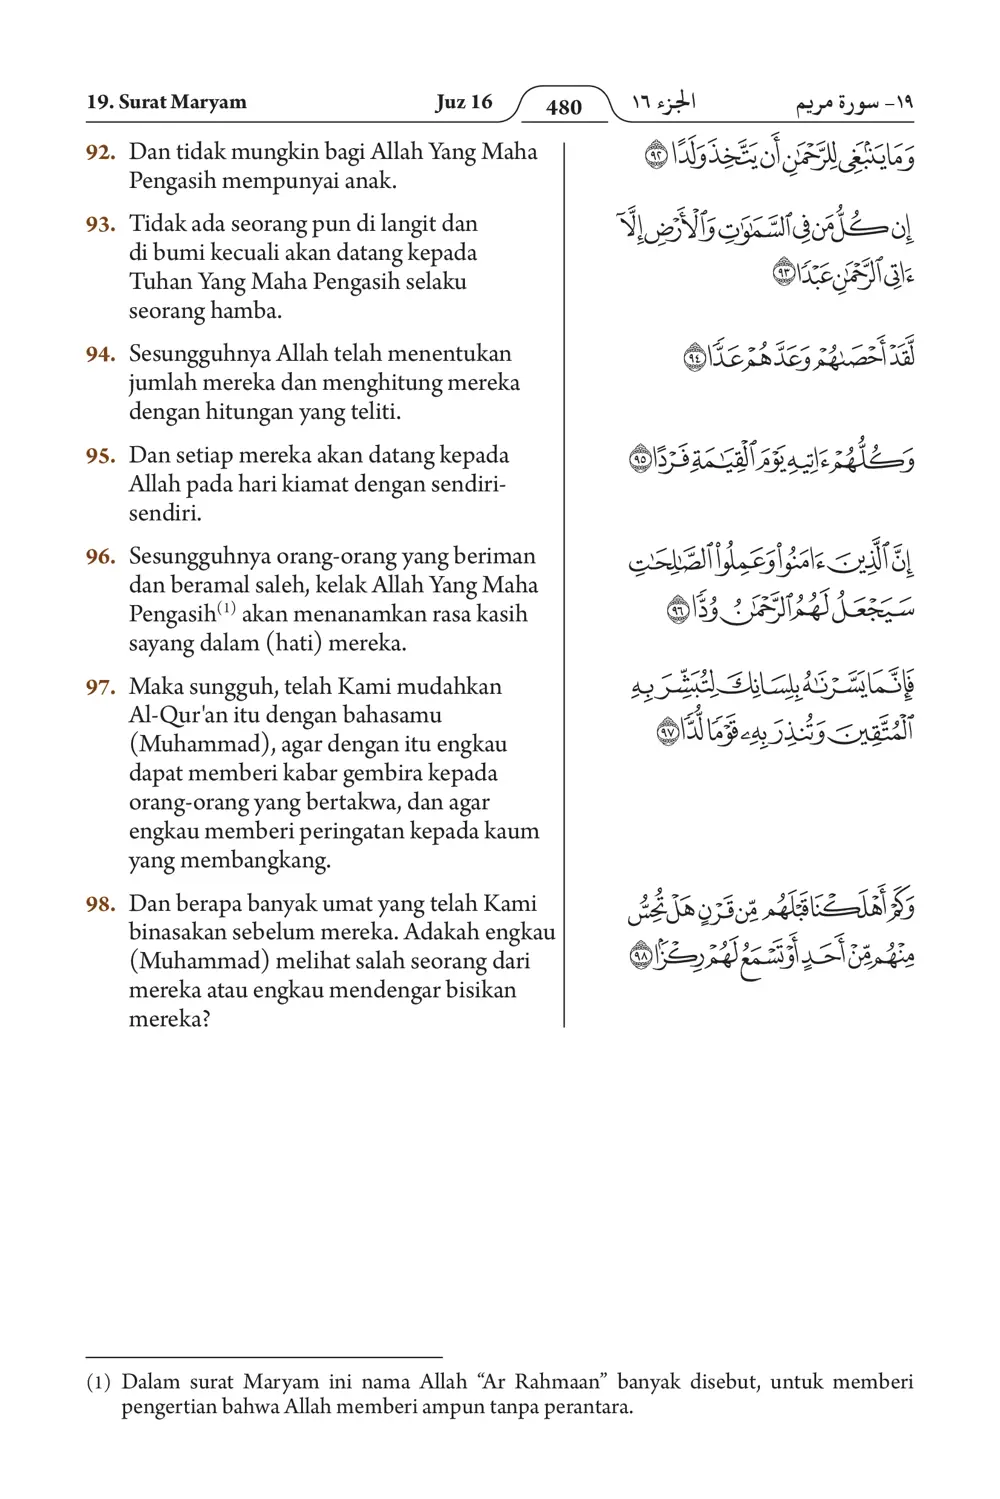 19. Surat Maryam
Juz 16
480
الجزء ١٦
١٩- سورة مريم
92. Dan tidak mungkin bagi Allah Yang Maha
Pengasih mempunyai anak.
93. Tidak ada seorang pun di langit dan
di bumi kecuali akan datang kepada
Tuhan Yang Maha Pengasih selaku
seorang hamba.
94. Sesungguhnya Allah telah menentukan
jumlah mereka dan menghitung mereka
dengan hitungan yang teliti.
95. Dan setiap mereka akan datang kepada
Allah pada hari kiamat dengan sendiri-
sendiri.
96. Sesungguhnya orang-orang yang beriman
dan beramal saleh, kelak Allah Yang Maha
Pengasih(1) akan menanamkan rasa kasih
sayang dalam (hati) mereka.
97. Maka sungguh, telah Kami mudahkan
Al-Qur'an itu dengan bahasamu
(Muhammad), agar dengan itu engkau
dapat memberi kabar gembira kepada
orang-orang yang bertakwa, dan agar
engkau memberi peringatan kepada kaum
yang membangkang.
98. Dan berapa banyak umat yang telah Kami
binasakan sebelum mereka. Adakah engkau
(Muhammad) melihat salah seorang dari
mereka atau engkau mendengar bisikan
mereka?
وَمَا يَنۢبَغِى لِلرَّحْمَٰنِ أَن يَتَّخِذَ وَلَدًا ٩٢
إِن كُلُّ مَن فِى ٱلسَّمَٰوَٰتِ وَٱلْأَرْضِ إِلَّآ
ءَاتِى ٱلرَّحْمَٰنِ عَبْدًا ٩٣
لَّقَدْ أَحْصَىٰهُمْ وَعَدَّهُمْ عَدًّا ٩٤
وَكُلُّهُمْ ءَاتِيهِ يَوْمَ ٱلْقِيَٰمَةِ فَرْدًا ٩٥
إِنَّ ٱلَّذِينَ ءَامَنُوا۟ وَعَمِلُوا۟ ٱلصَّٰلِحَٰتِ
سَيَجْعَلُ لَهُمُ ٱلرَّحْمَٰنُ وُدًّا ٩٦
فَإِنَّمَا يَسَّرْنَٰهُ بِلِسَانِكَ لِتُبَشِّرَ بِهِ
ٱلْمُتَّقِينَ وَتُنذِرَ بِهِۦ قَوْمًا لُّدًّا ٩٧
وَكَمْ أَهْلَكْنَا قَبْلَهُم مِّن قَرْنٍ هَلْ تُحِسُّ
مِنْهُم مِّنْ أَحَدٍ أَوْ تَسْمَعُ لَهُمْ رِكْزًۢا ٩٨
(1) Dalam surat Maryam ini nama Allah “Ar Rahmaan” banyak disebut, untuk memberi
pengertian bahwa Allah memberi ampun tanpa perantara.